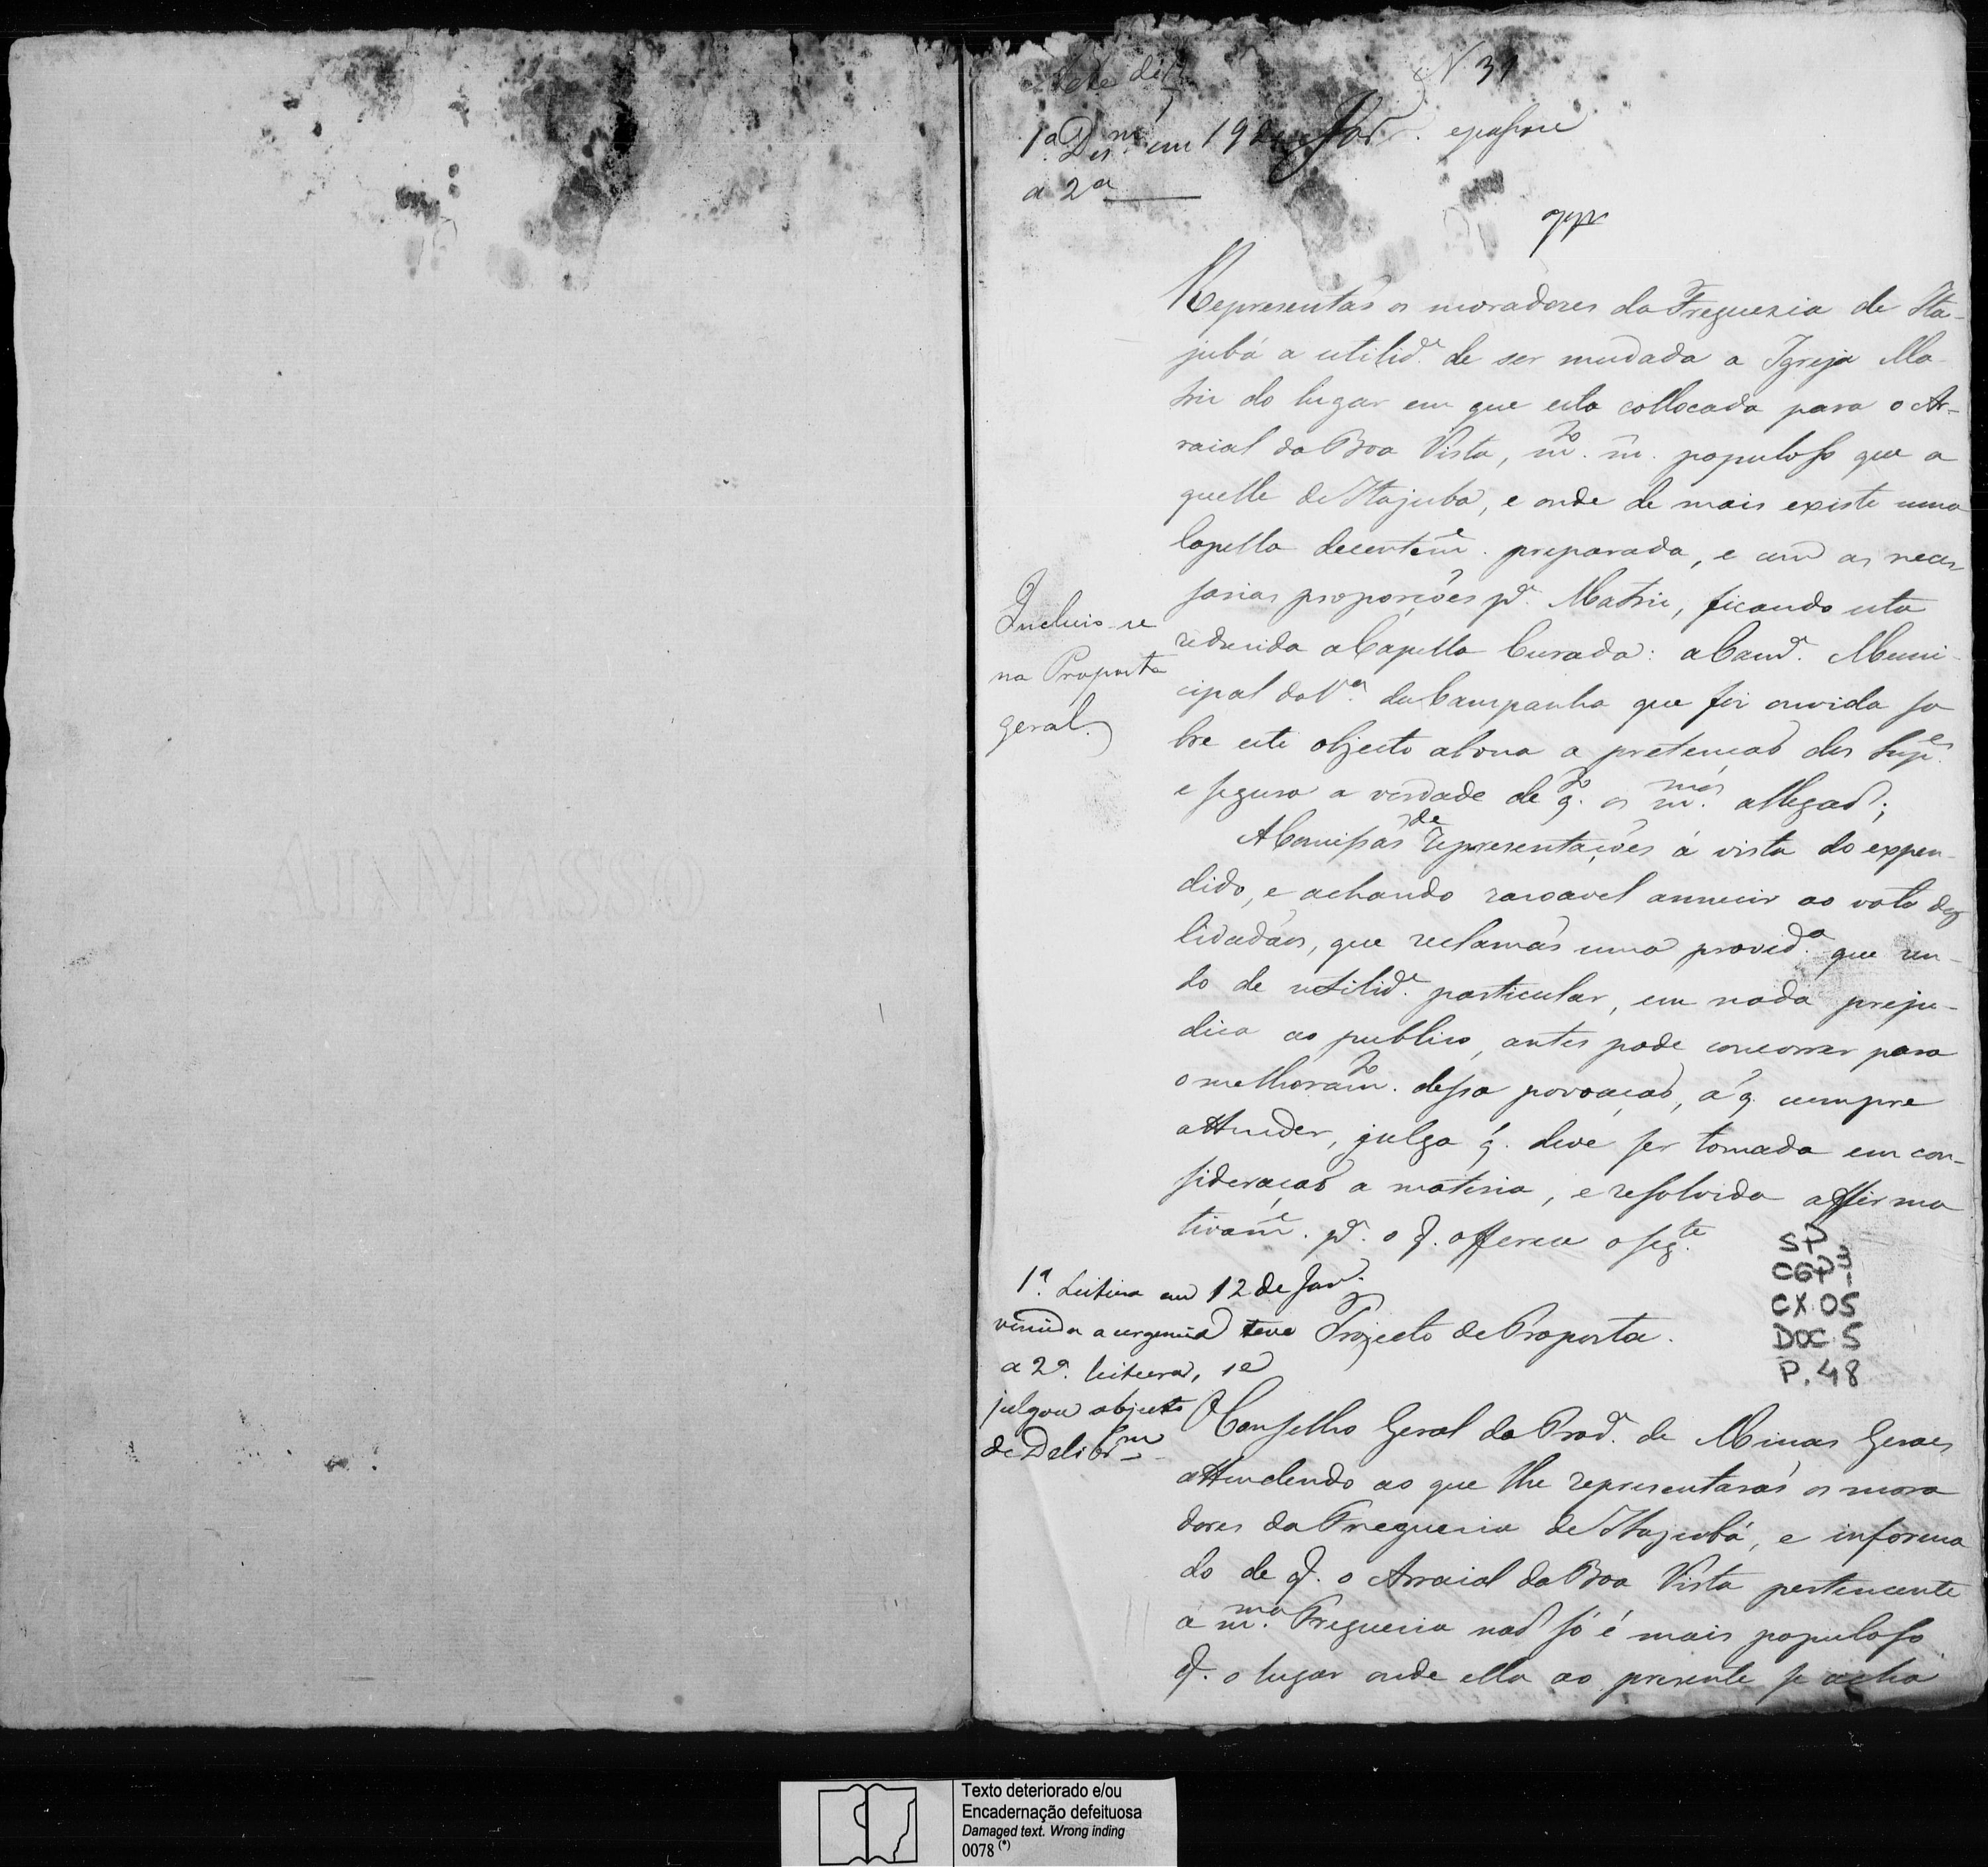 N. 31
1.ª Dis.m em 19 de
a 2ª
Representaõ os moradores da Freguezia de Ita-
jubá a utilid.e de ser mudada a Igreja Ma
triz do lugar em que está collocada para o Ar-
raial da Boa Vista, m.to m. populoso que a
quelle de Itajuba, e onde de mais existe uma
Capella decentem.e preparada, e com as neces
sarias proporções p.a Matriz, ficando esta
reduzida a Capella Curada: a Cam.a Muni-
cipal da V.a da Campanha que foi ouvida so
bre este objecto abona a pretençaõ dos Supp.es
e segura a verdade de q.to os m.mos allegaõ;
A Comissaõ de representações á vista do expen-
dido, e achando rasoavel annuir ao voto dos
Cidadaõs, que reclamaõ uma provid.a que sen-
do de utilid.e particular, em nada preju-
dica ao publico, antes pode concorrer para
o melhoram.to dessa povoaçaõ, á q. cumpre
attender, julga q. deve ser tomada em con-
sideraçaõ a materia, e resolvida affirma
tivam.e p.a o q. offerece o seg.te
Incluio-se
na Proposta
geral.
SP
CGP 3
CX. 05
DOC. 5
P. 48
1.ª Leitura em 12 de Jan.
vencida a urgencia teve
a 2.ª leitura, se
julgou objecto
de Delibr.m
Projecto de Proposta.
O Conselho Geral da Prov.a de Minas Geraes
attendendo ao que lhe representaraõ os mora
dores da Freguezia de Itajubá, e informa
do de q. o Arraial da Boa Vista pertencente
á m.ma Freguezia naõ só é mais populoso
q. o lugar onde ella ao presente se acha
Texto deteriorado e/ou
Encadernação defeituosa
Damaged text. Wrong inding
0078 (*)